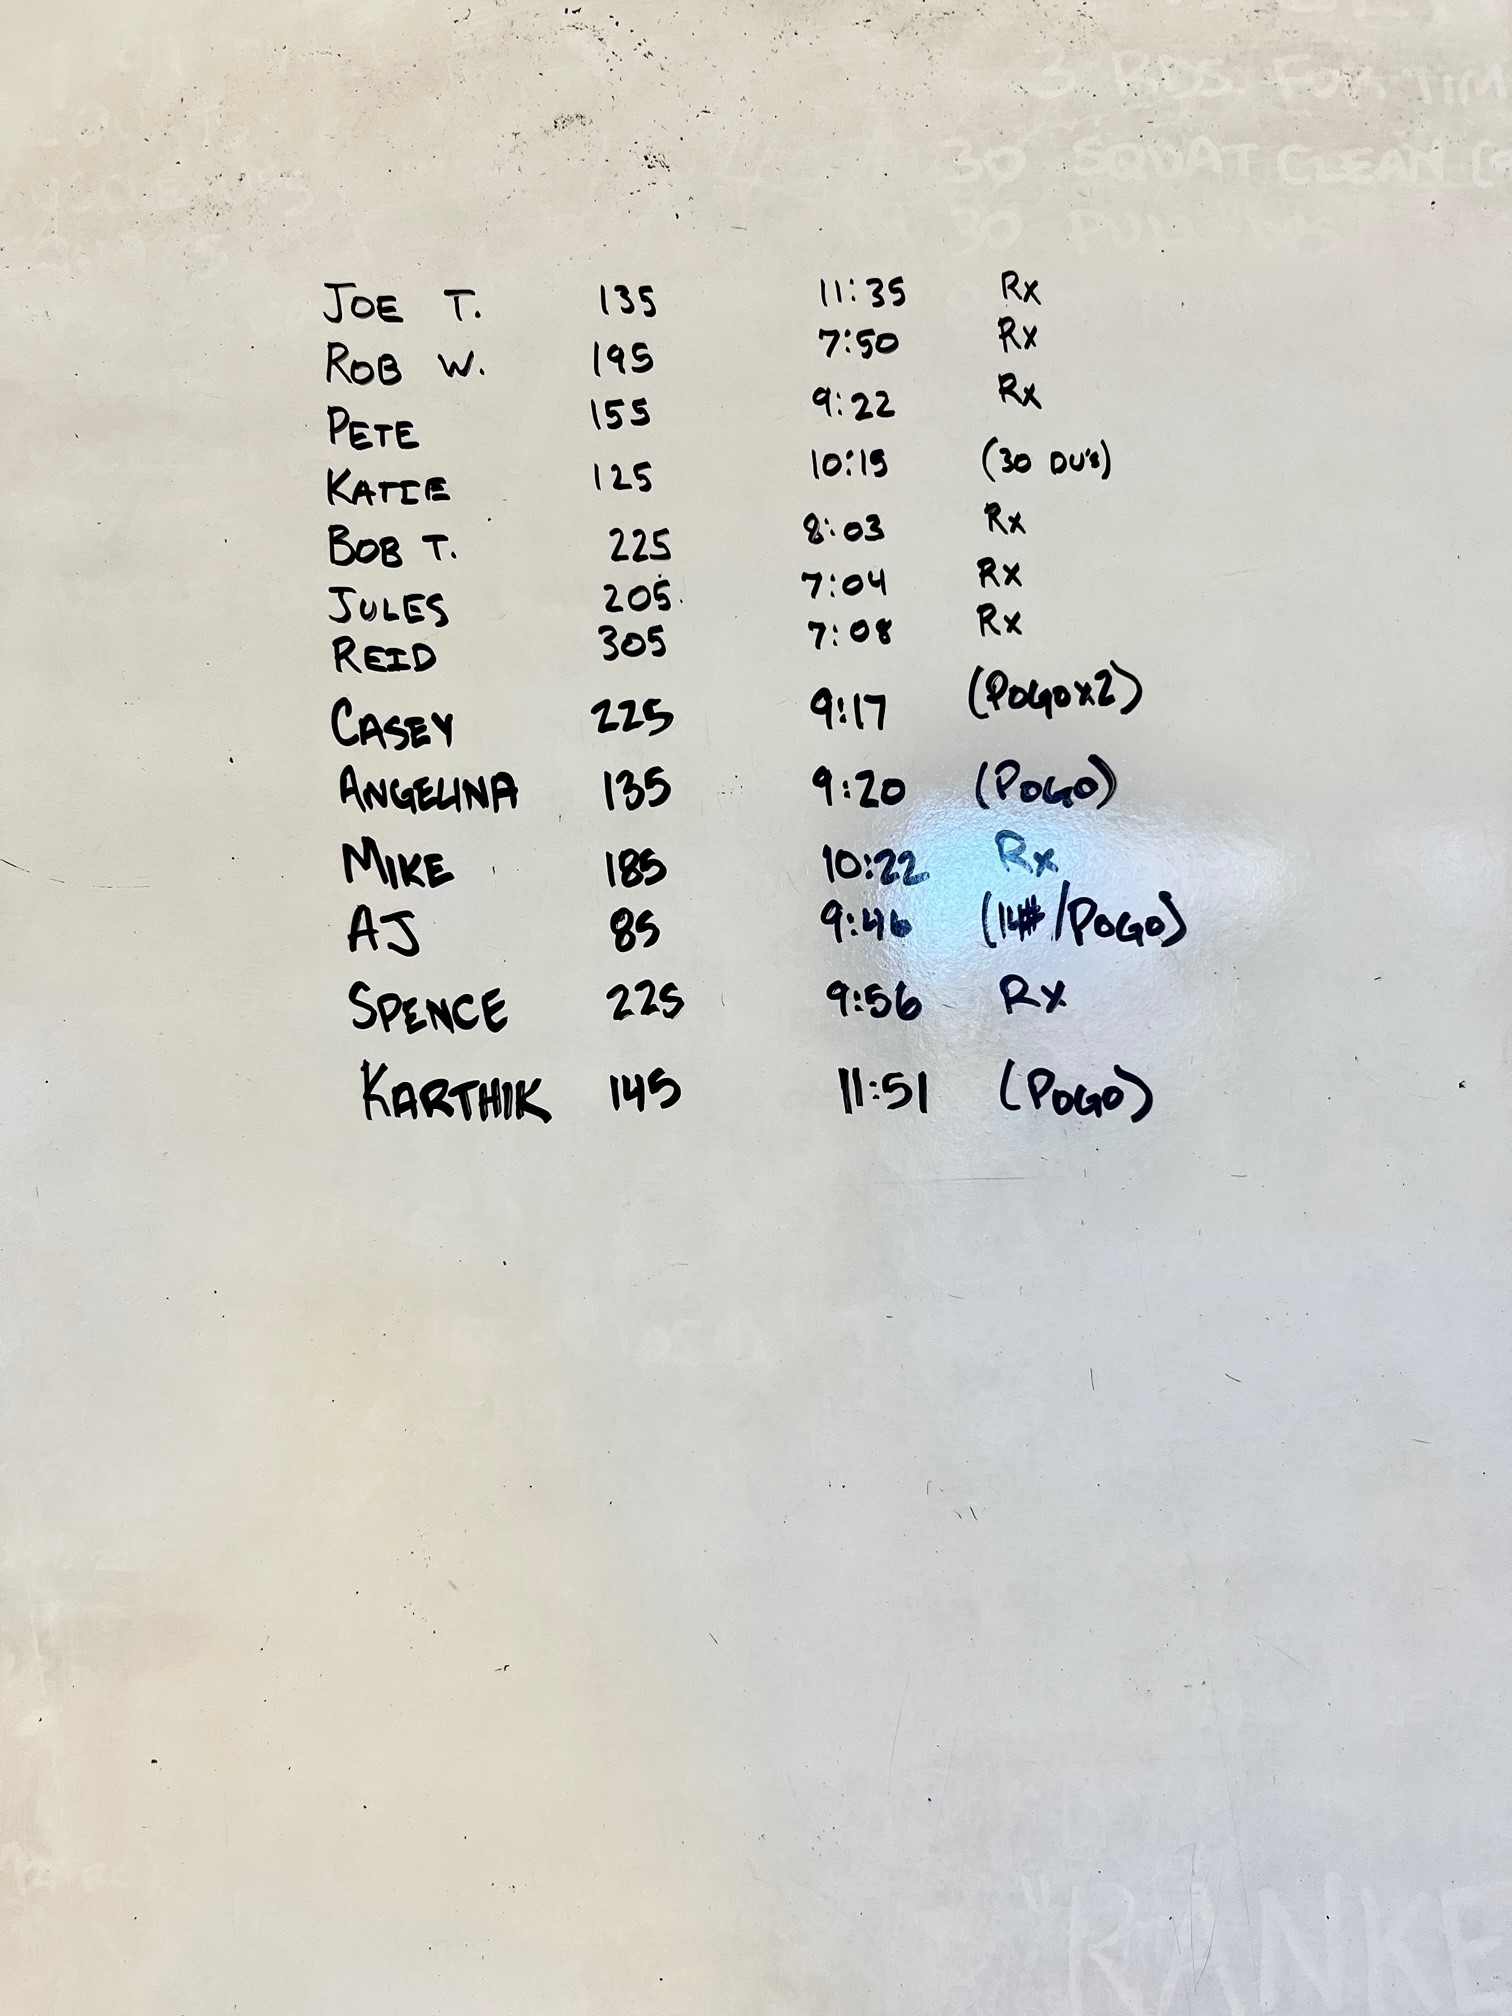 3 RDS. FOR TIM
30 SQUAT CLEAN
30 PULL-UPS
JOE T. 135 11:35 Rx
ROB W. 195 7:50 Rx
PETE 155 9:22 Rx
KATIE 125 10:15 (30 DU's)
BOB T. 225 8:03 Rx
JULES 205 7:04 Rx
REID 305 7:08 Rx
CASEY 225 9:17 (POGOx2)
ANGELINA 135 9:20 (POGO)
MIKE 185 10:22 Rx
AJ 85 9:46 (14#/POGO)
SPENCE 225 9:56 Rx
KARTHIK 145 11:51 (POGO)
"RANKE